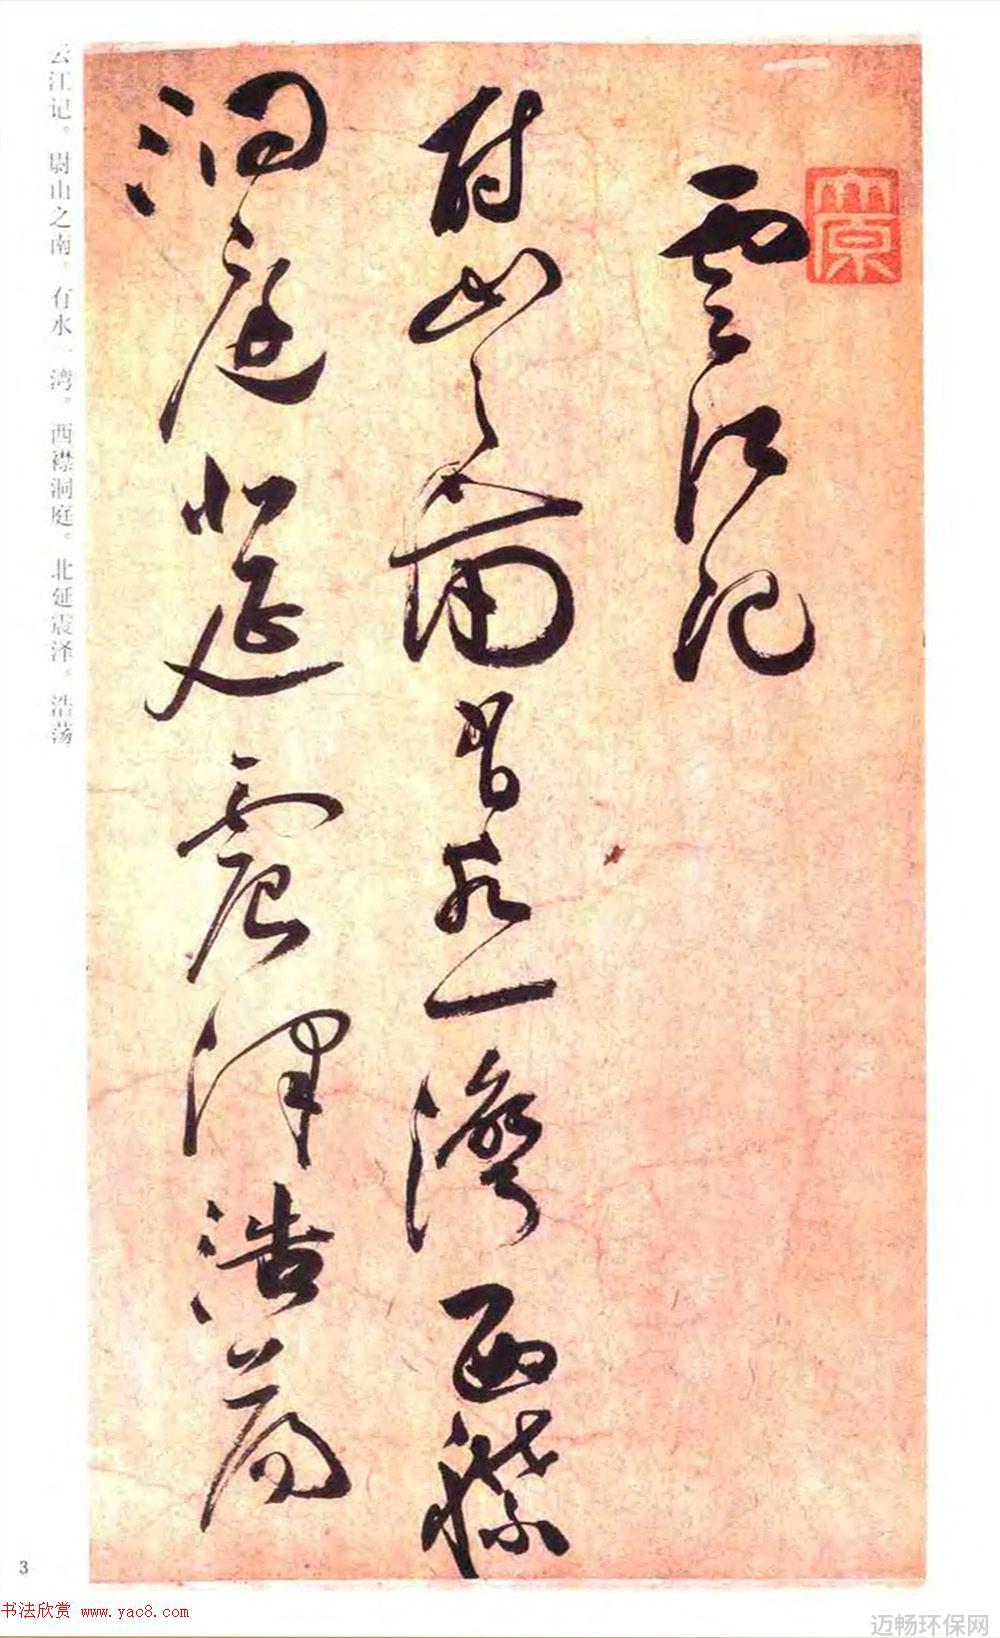 雲江記
尉山之南有水一灣西襟
洞庭北延震澤浩蕩
云江记。尉山之南。有水一湾。西襟洞庭。北延震泽。浩荡
3
书法欣赏 www.yac8.com
迈畅环保网